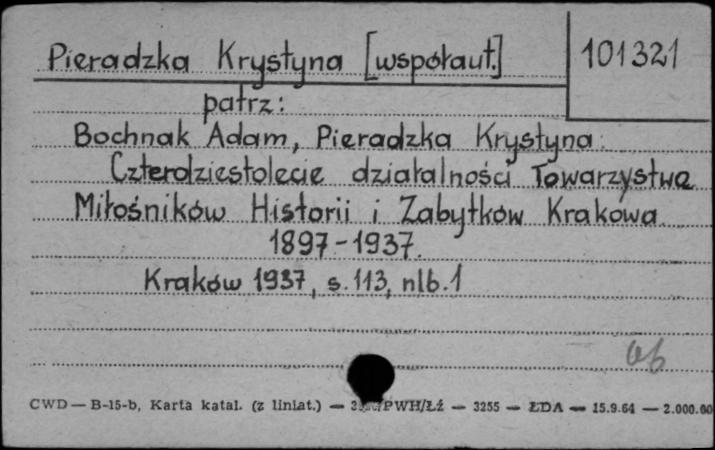 Pieradzka Krystyna [współaut.]
101321
patrz:
Bochnak Adam, Pieradzka Krystyna:
Czterdziestolecie działalności Towarzystwa
Miłośników Historii i Zabytków Krakowa
1897-1937.
Kraków 1937, s. 113, nlb. 1
CWD — B-15-b, Karta katal. (z liniat.) — /PWH/Łź — 3255 — ŁDA — 15.9.64 — 2.000.00